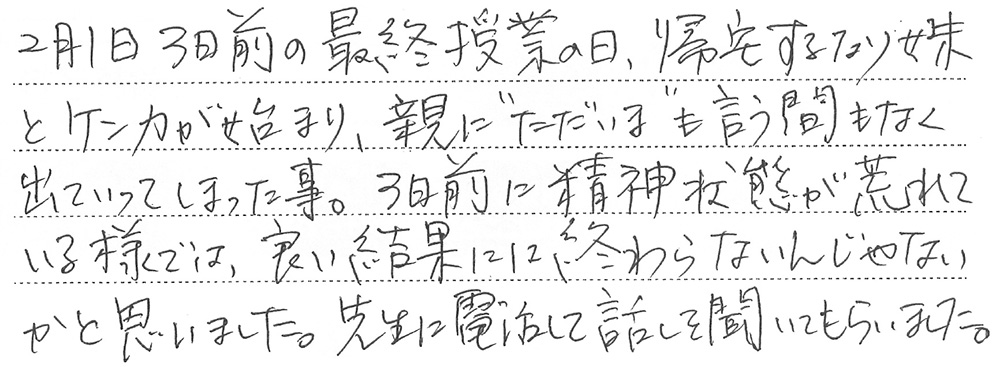 2月1日 3日前の最終授業の日、帰宅するなり妹
とケンカが始まり、親に"ただいま"も言う間もなく
出ていってしまった事。3日前に精神状態が荒れて
いる様では、良い結果にに終わらないんじゃない
かと思いました。先生に電話して話しを聞いてもらいました。